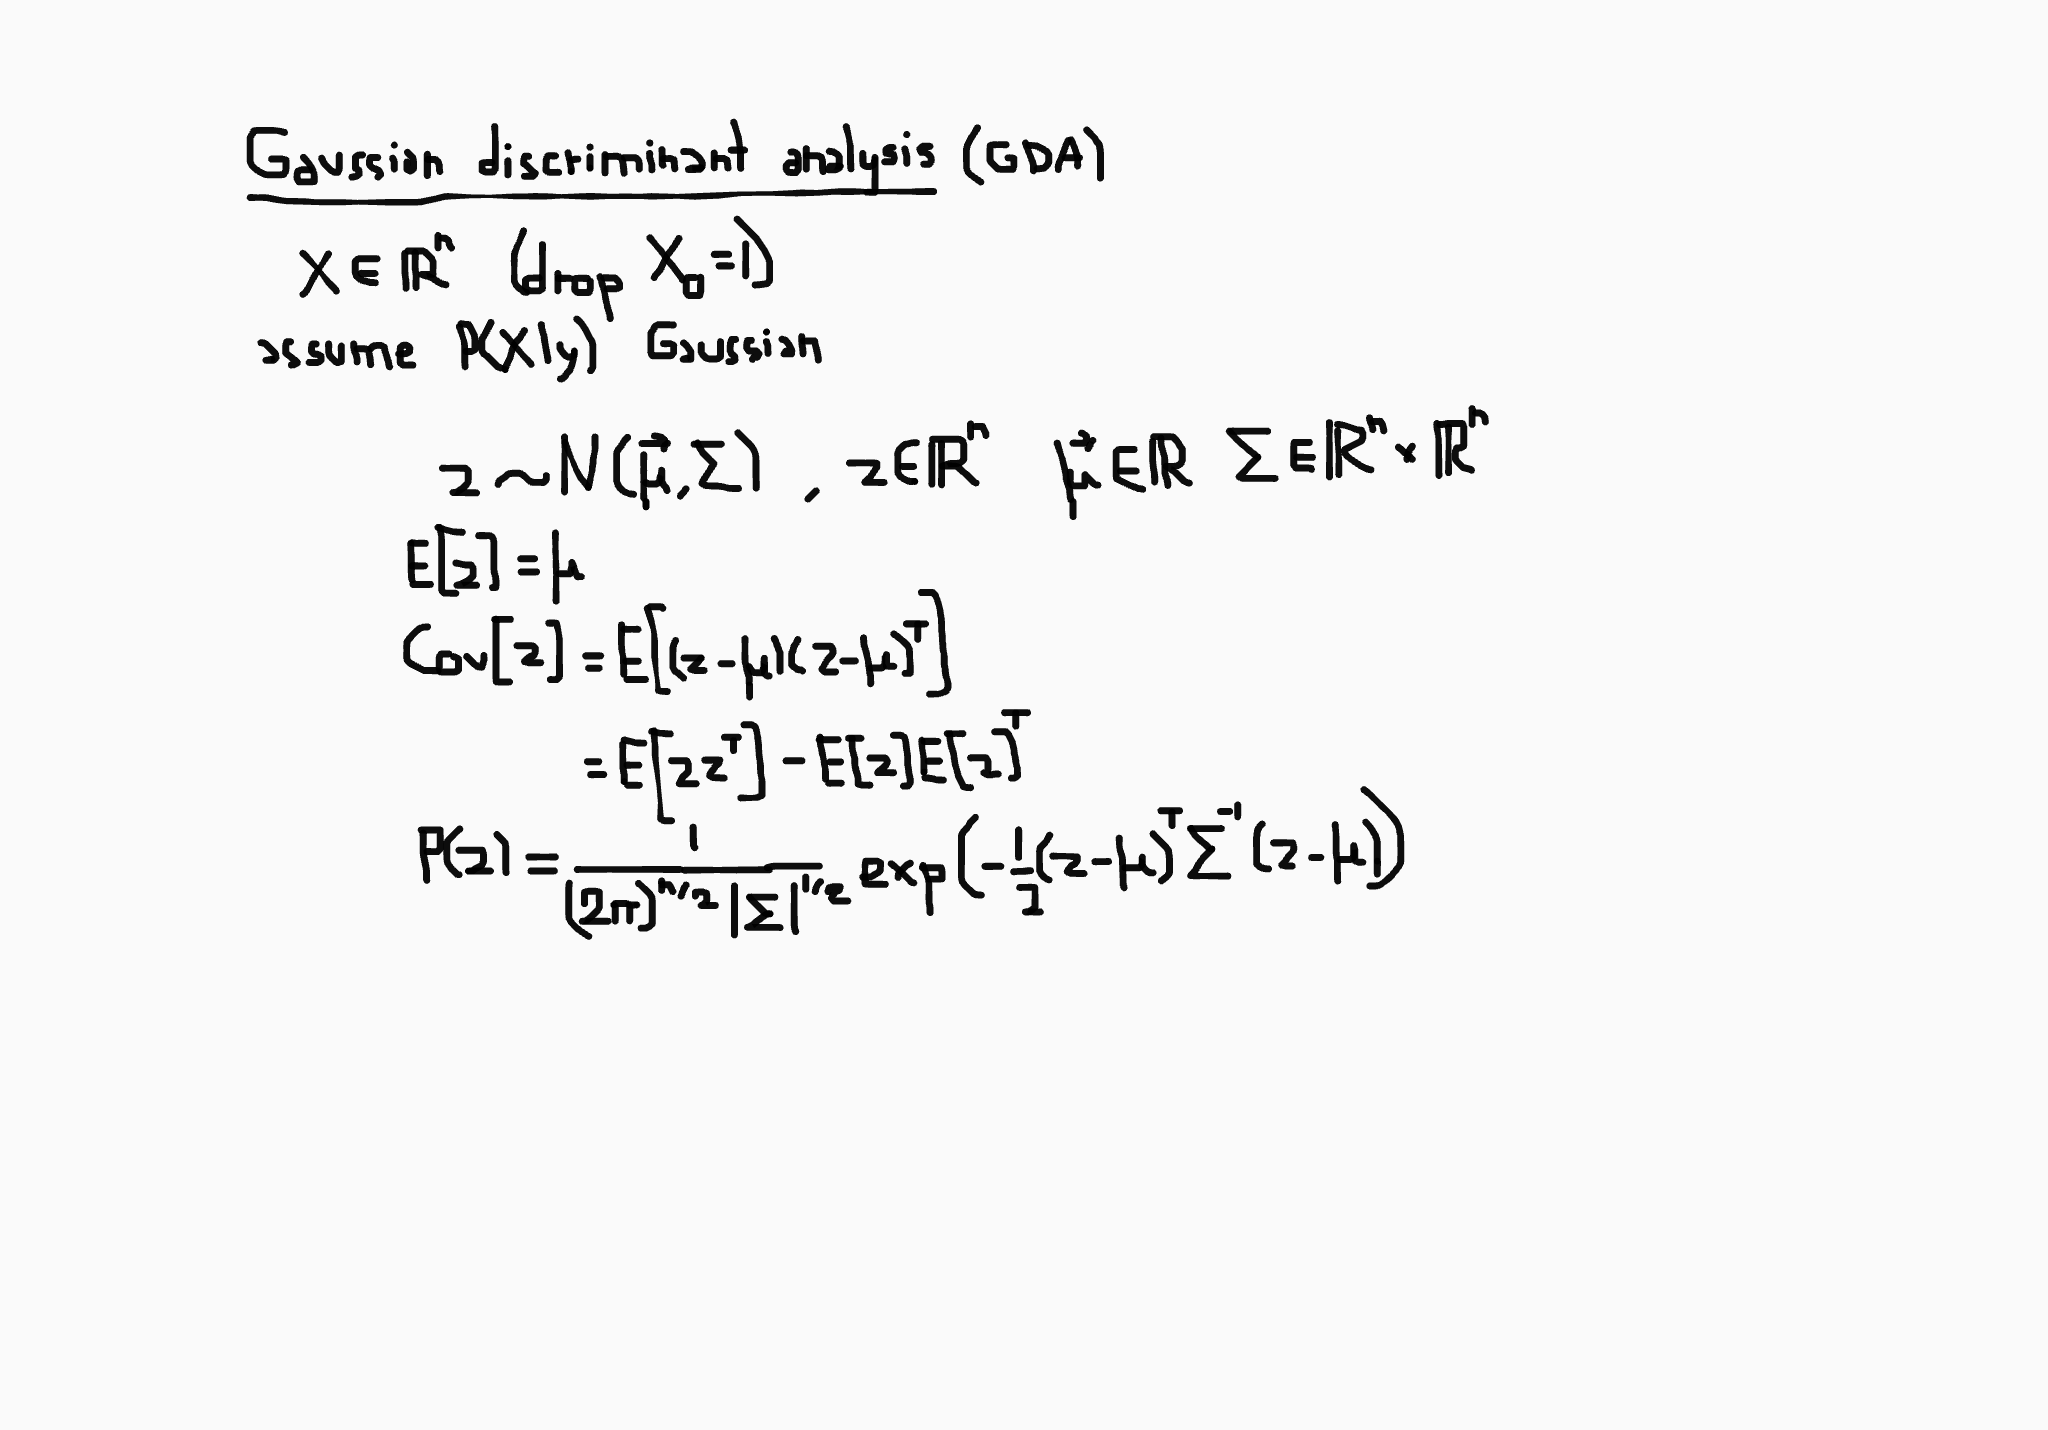 Gaussian discriminant analysis (GDA)
X ∈ ℝⁿ (drop X₀ = 1)
assume P(X|y) Gaussian
z ~ N(μ⃗, Σ) , z ∈ ℝⁿ μ⃗ ∈ ℝ Σ ∈ ℝⁿ × ℝⁿ
E[z] = μ
Cov[z] = E[(z-μ)(z-μ)ᵀ]
= E[zzᵀ] - E[z]E[z]ᵀ
P(z) = 1/((2π)^(n/2) |Σ|^(1/2)) exp(-1/2 (z-μ)ᵀ Σ⁻¹ (z-μ))